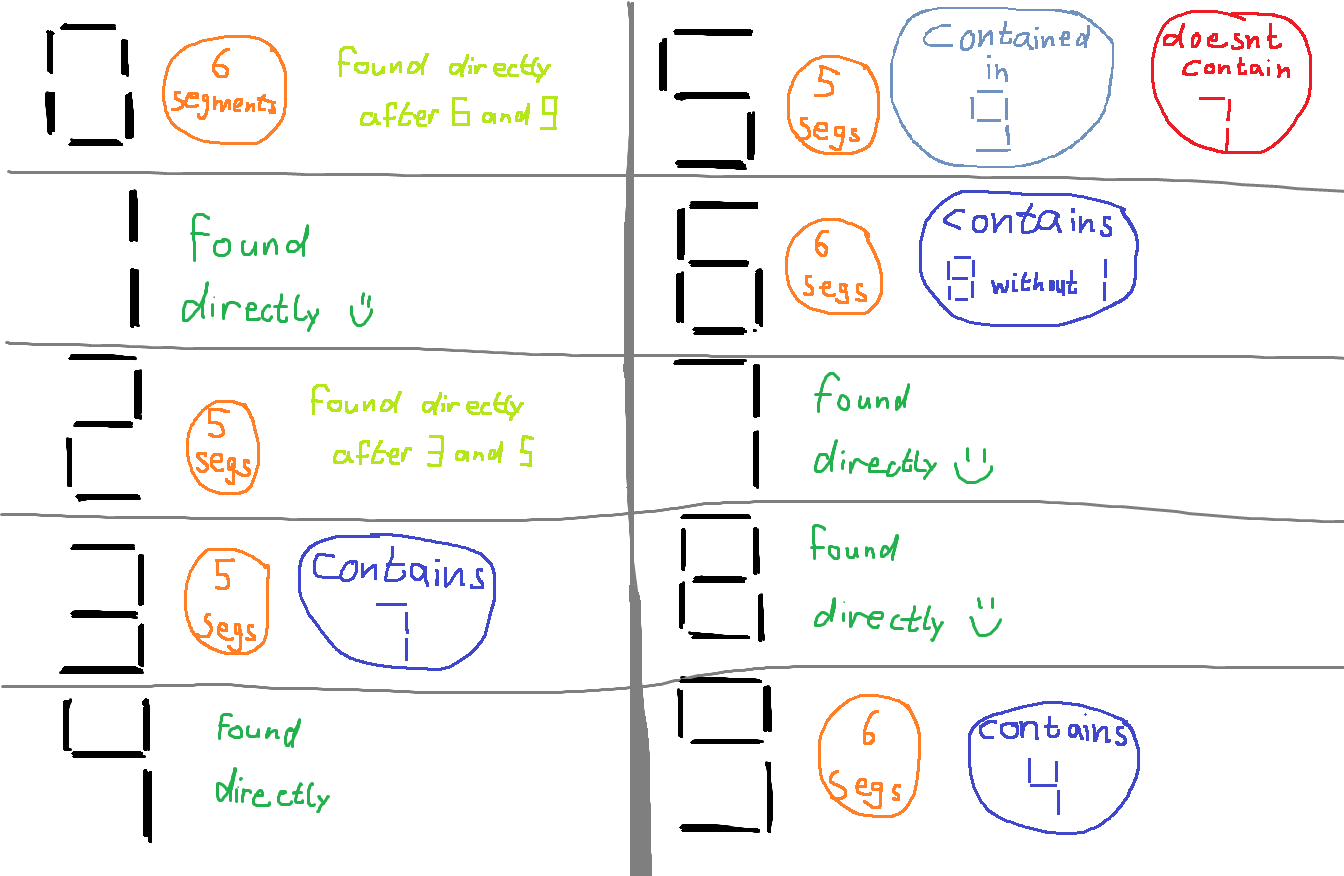 0
6
segments
found directly
after 6 and 9
1
found
directly
2
5
segs
found directly
after 3 and 5
3
5
segs
Contains
7
4
found
directly
5
5
segs
Contained
in
9
doesnt
contain
7
6
6
segs
contains
8 without 1
7
found
directly
8
found
directly
9
6
segs
contains
4